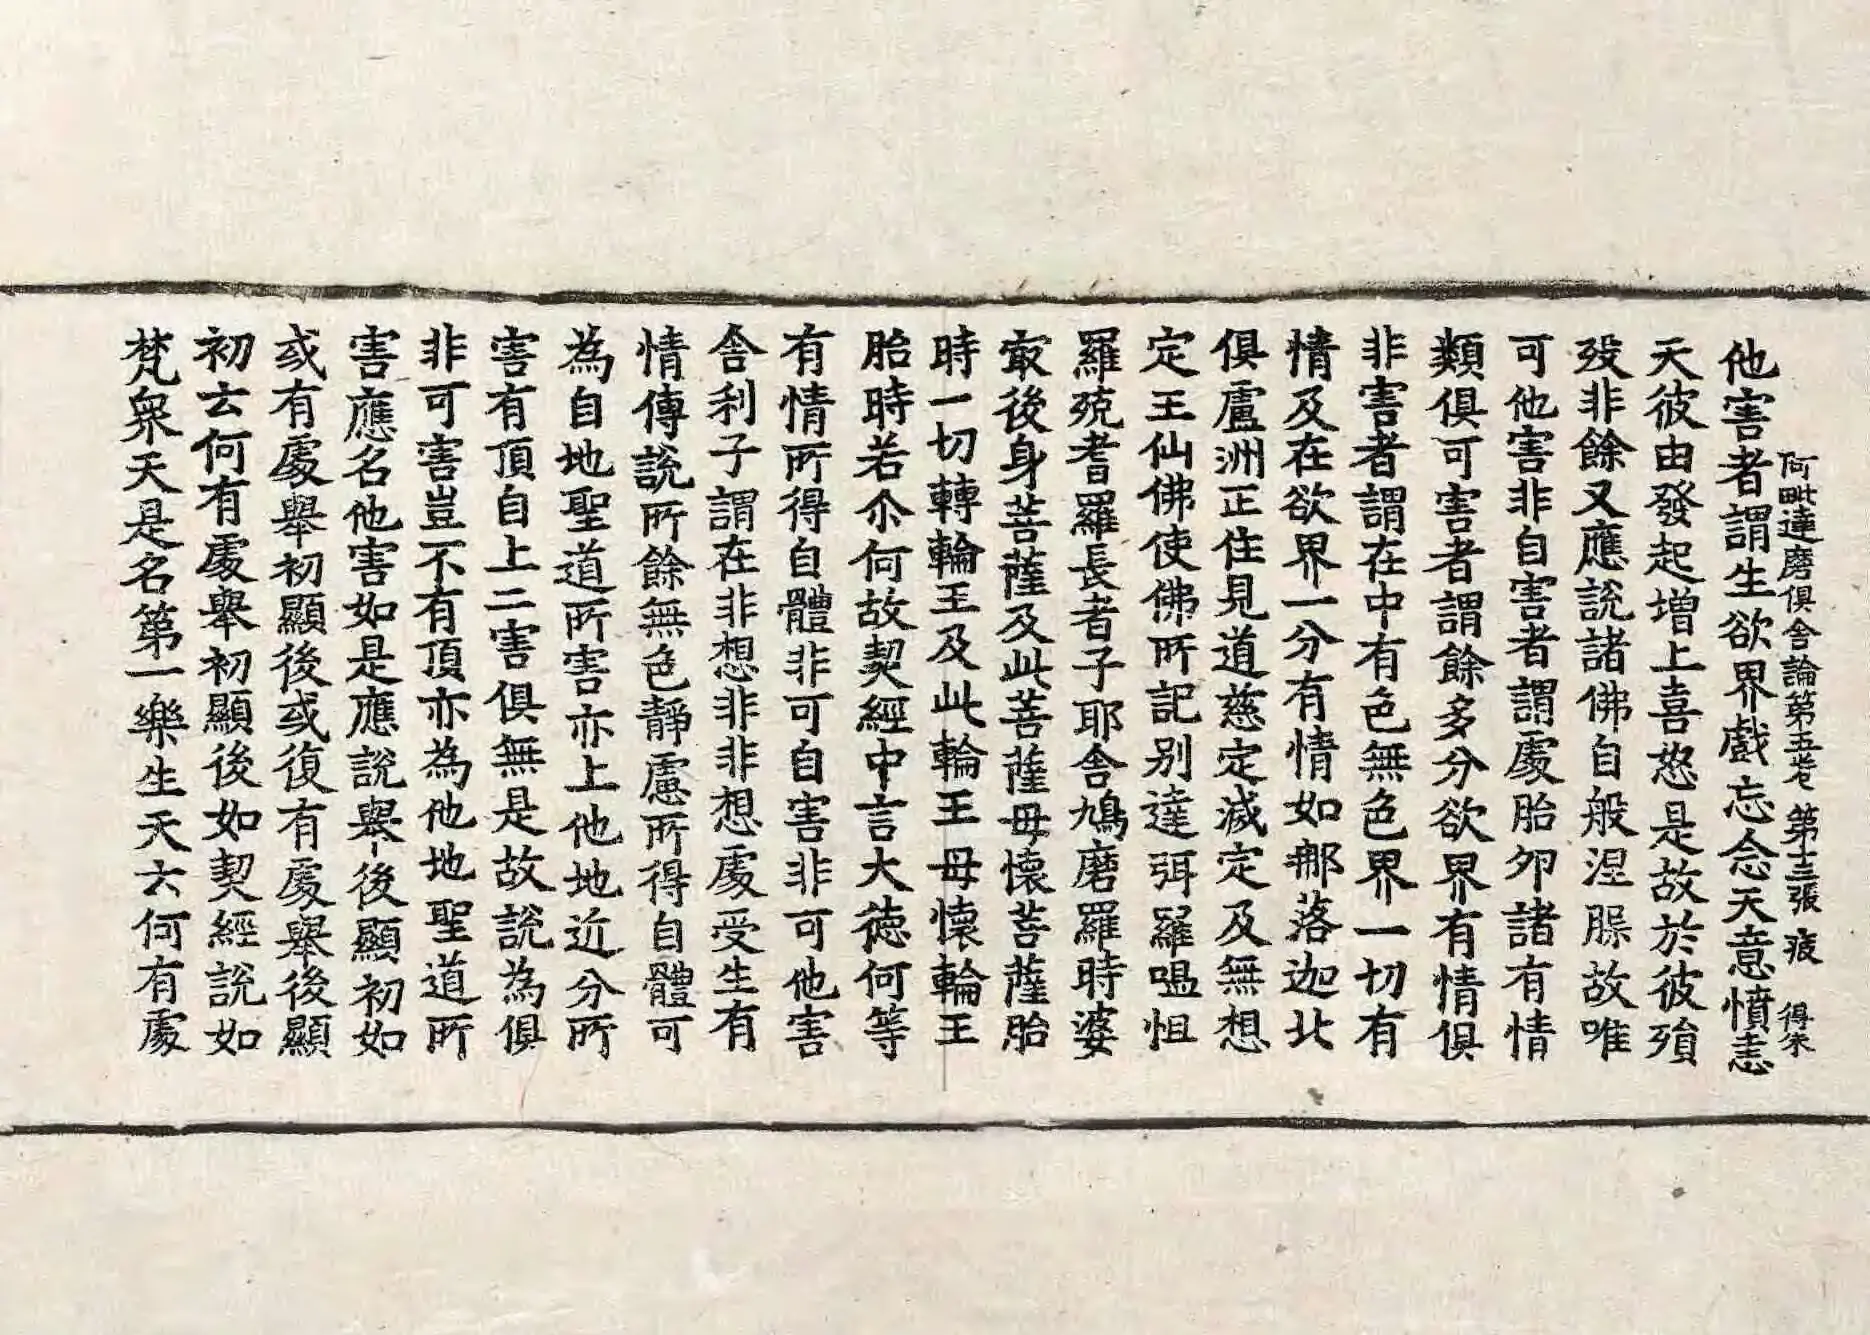 阿毗達磨俱舍論第五卷 第十三張 疲 得朱
他害者謂生欲界戲忘念天意憤恚
天彼由發起增上喜怒是故於彼殞
歿非餘又應說諸佛自般涅槃故唯
可他害非自害者謂處胎卵諸有情
類俱可害者謂餘多分欲界有情俱
非害者謂在中有色無色界一切有
情及在欲界一分有情如那落迦北
俱盧洲正住見道慈定滅定及無想
定王仙佛使佛所記別達弭羅嗢怛
羅殑耆羅長者子耶舍鳩磨羅時婆
㝡後身菩薩及此菩薩母懷菩薩胎
時一切轉輪王及此輪王母懷輪王
胎時若尒何故契經中言大德何等
有情所得自體非可自害非可他害
舍利子謂在非想非非想處受生有
情傳說所餘無色靜慮所得自體可
為自地聖道所害亦上他地近分所
害有頂自上二害俱無是故說為俱
非可害豈不有頂亦為他地聖道所
害應名他害如是應說舉後顯初如
或有處舉初顯後或復有處舉後顯
初云何有處舉初顯後如契經說如
梵眾天是名第一樂生天云何有處